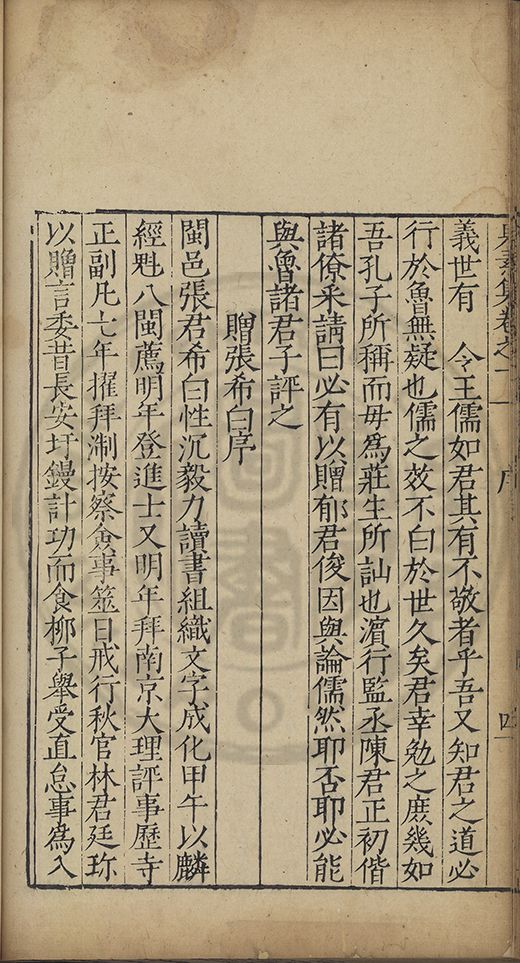 義世有　令王儒如君其有不敬者乎吾又知君之道必
行於魯無疑也儒之效不白於世久矣君幸勉之庶幾如
吾孔子所稱而毋為莊生所訕也濵行監丞陳君正初偕
諸僚寀請曰必有以贈郁君俊因與論儒然耶否耶必能
與魯諸君子評之
贈張希白序
閩邑張君希白性沉毅力讀書組織文字成化甲午以麟
經魁八閩薦明年登進士又明年拜南京大理評事歷寺
正副凡七年擢拜淛按察僉事筮日戒行秋官林君廷珎
以贈言委昔長安圬鏝計功而食柳子舉受直怠事為入